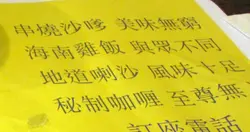 串燒沙嗲 美味無窮
海南雞飯 與眾不同
地道喇沙 風味十足
秘制咖喱 至尊無
訂座電話